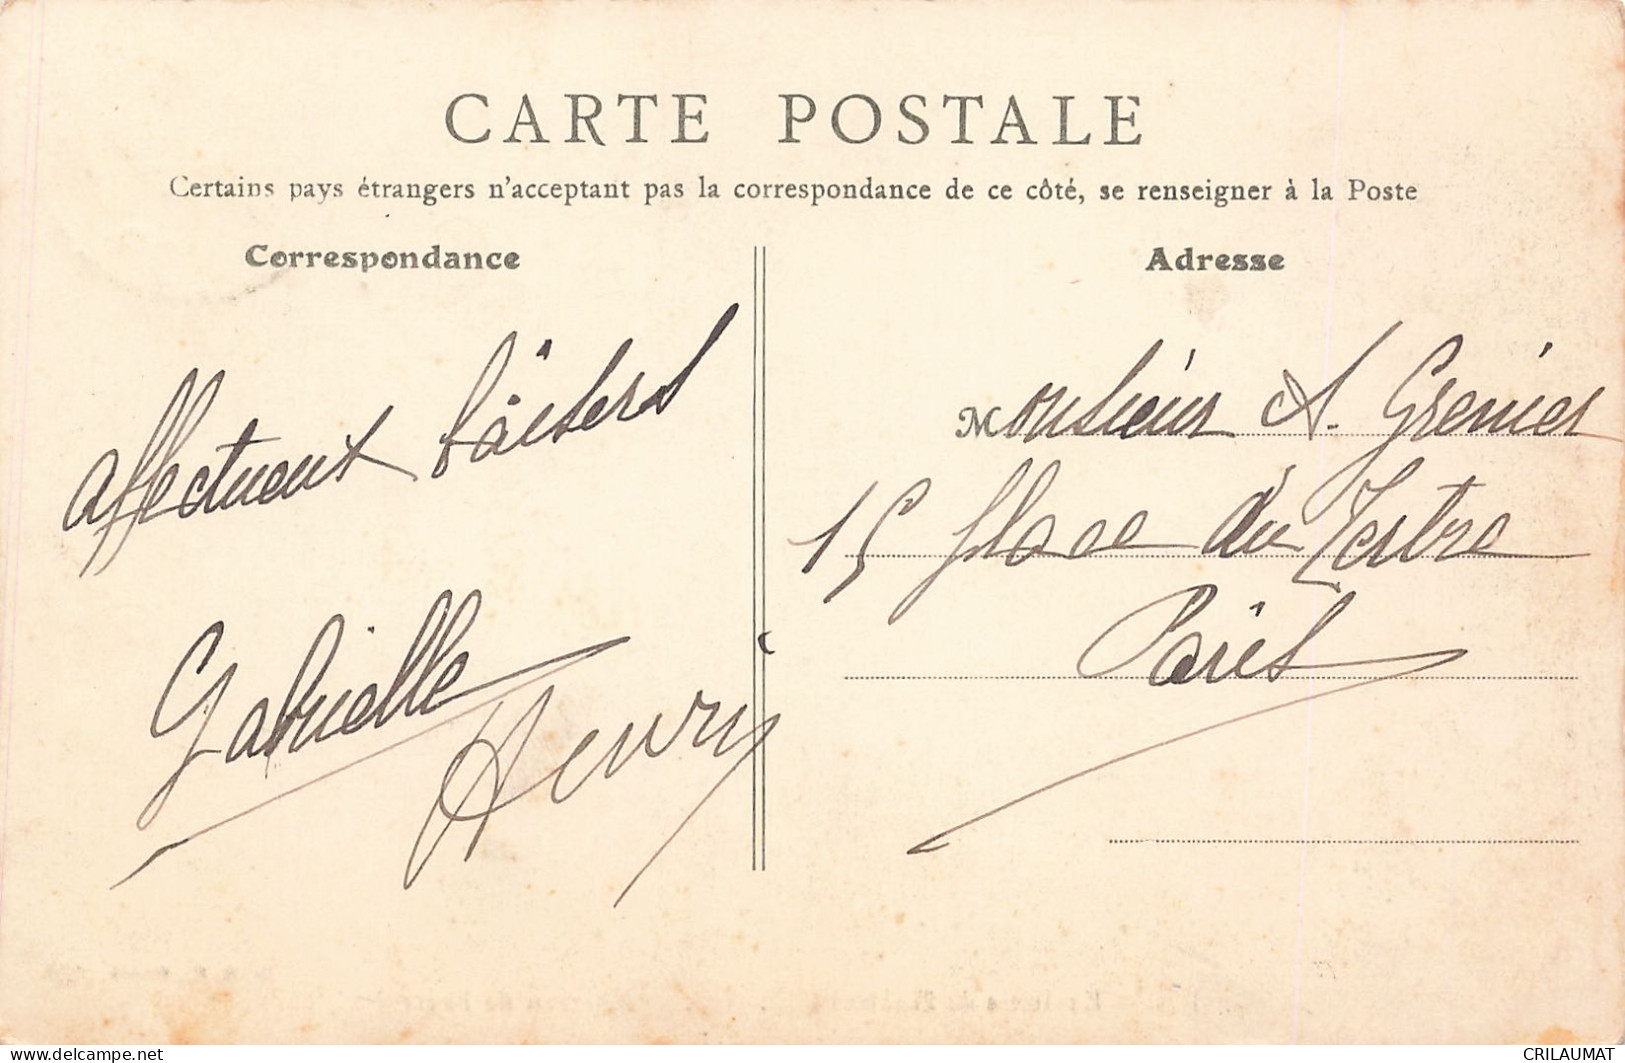 CARTE POSTALE
Certains pays étrangers n'acceptant pas la correspondance de ce côté, se renseigner à la Poste
Correspondance
affectueux baisers
Gabrielle
Henry
Adresse
Monsieur A. Grenier
15 place du Tertre
Paris
www.delcampe.net
CRILAUMAT